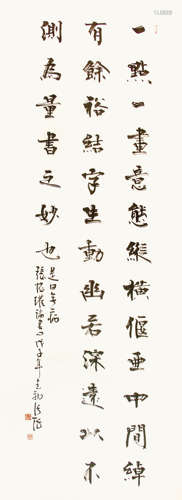 一點一畫意態縱橫偃亞中間綽
有餘裕結字生動幽若深遠以不
測為量書之妙也